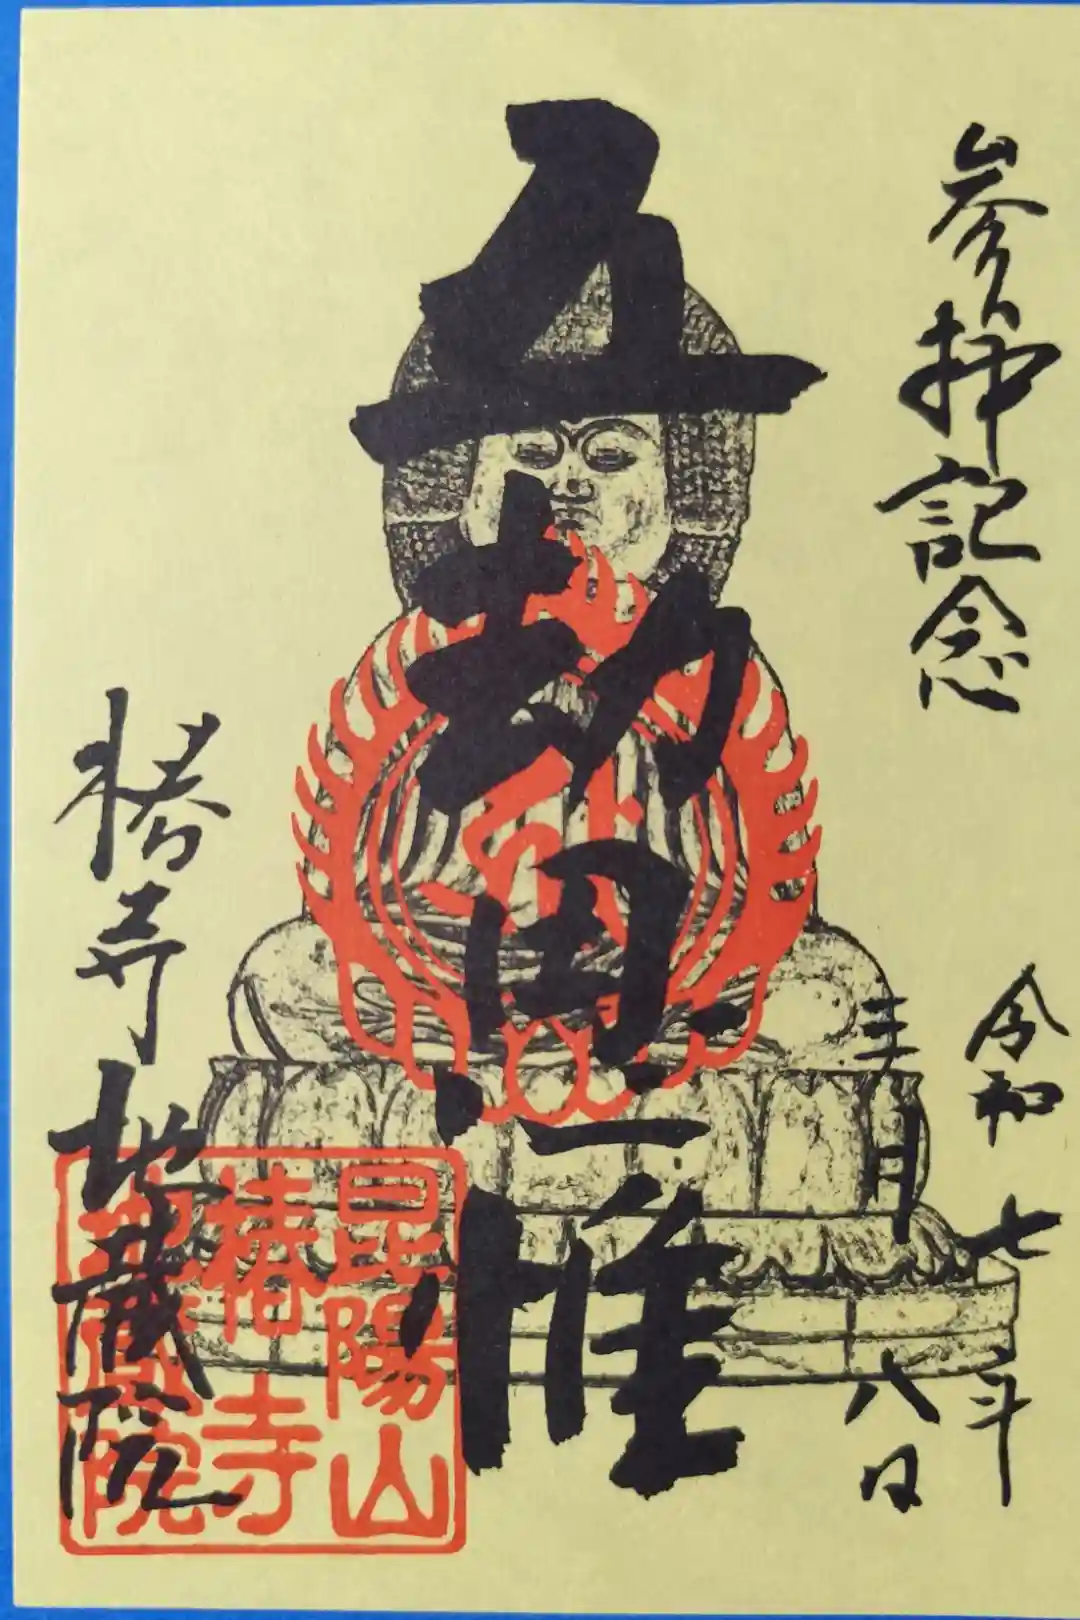 参拝記念
令和七年
三月八日
五劫思惟
椿寺 地蔵院
昆陽山
椿寺
地蔵院